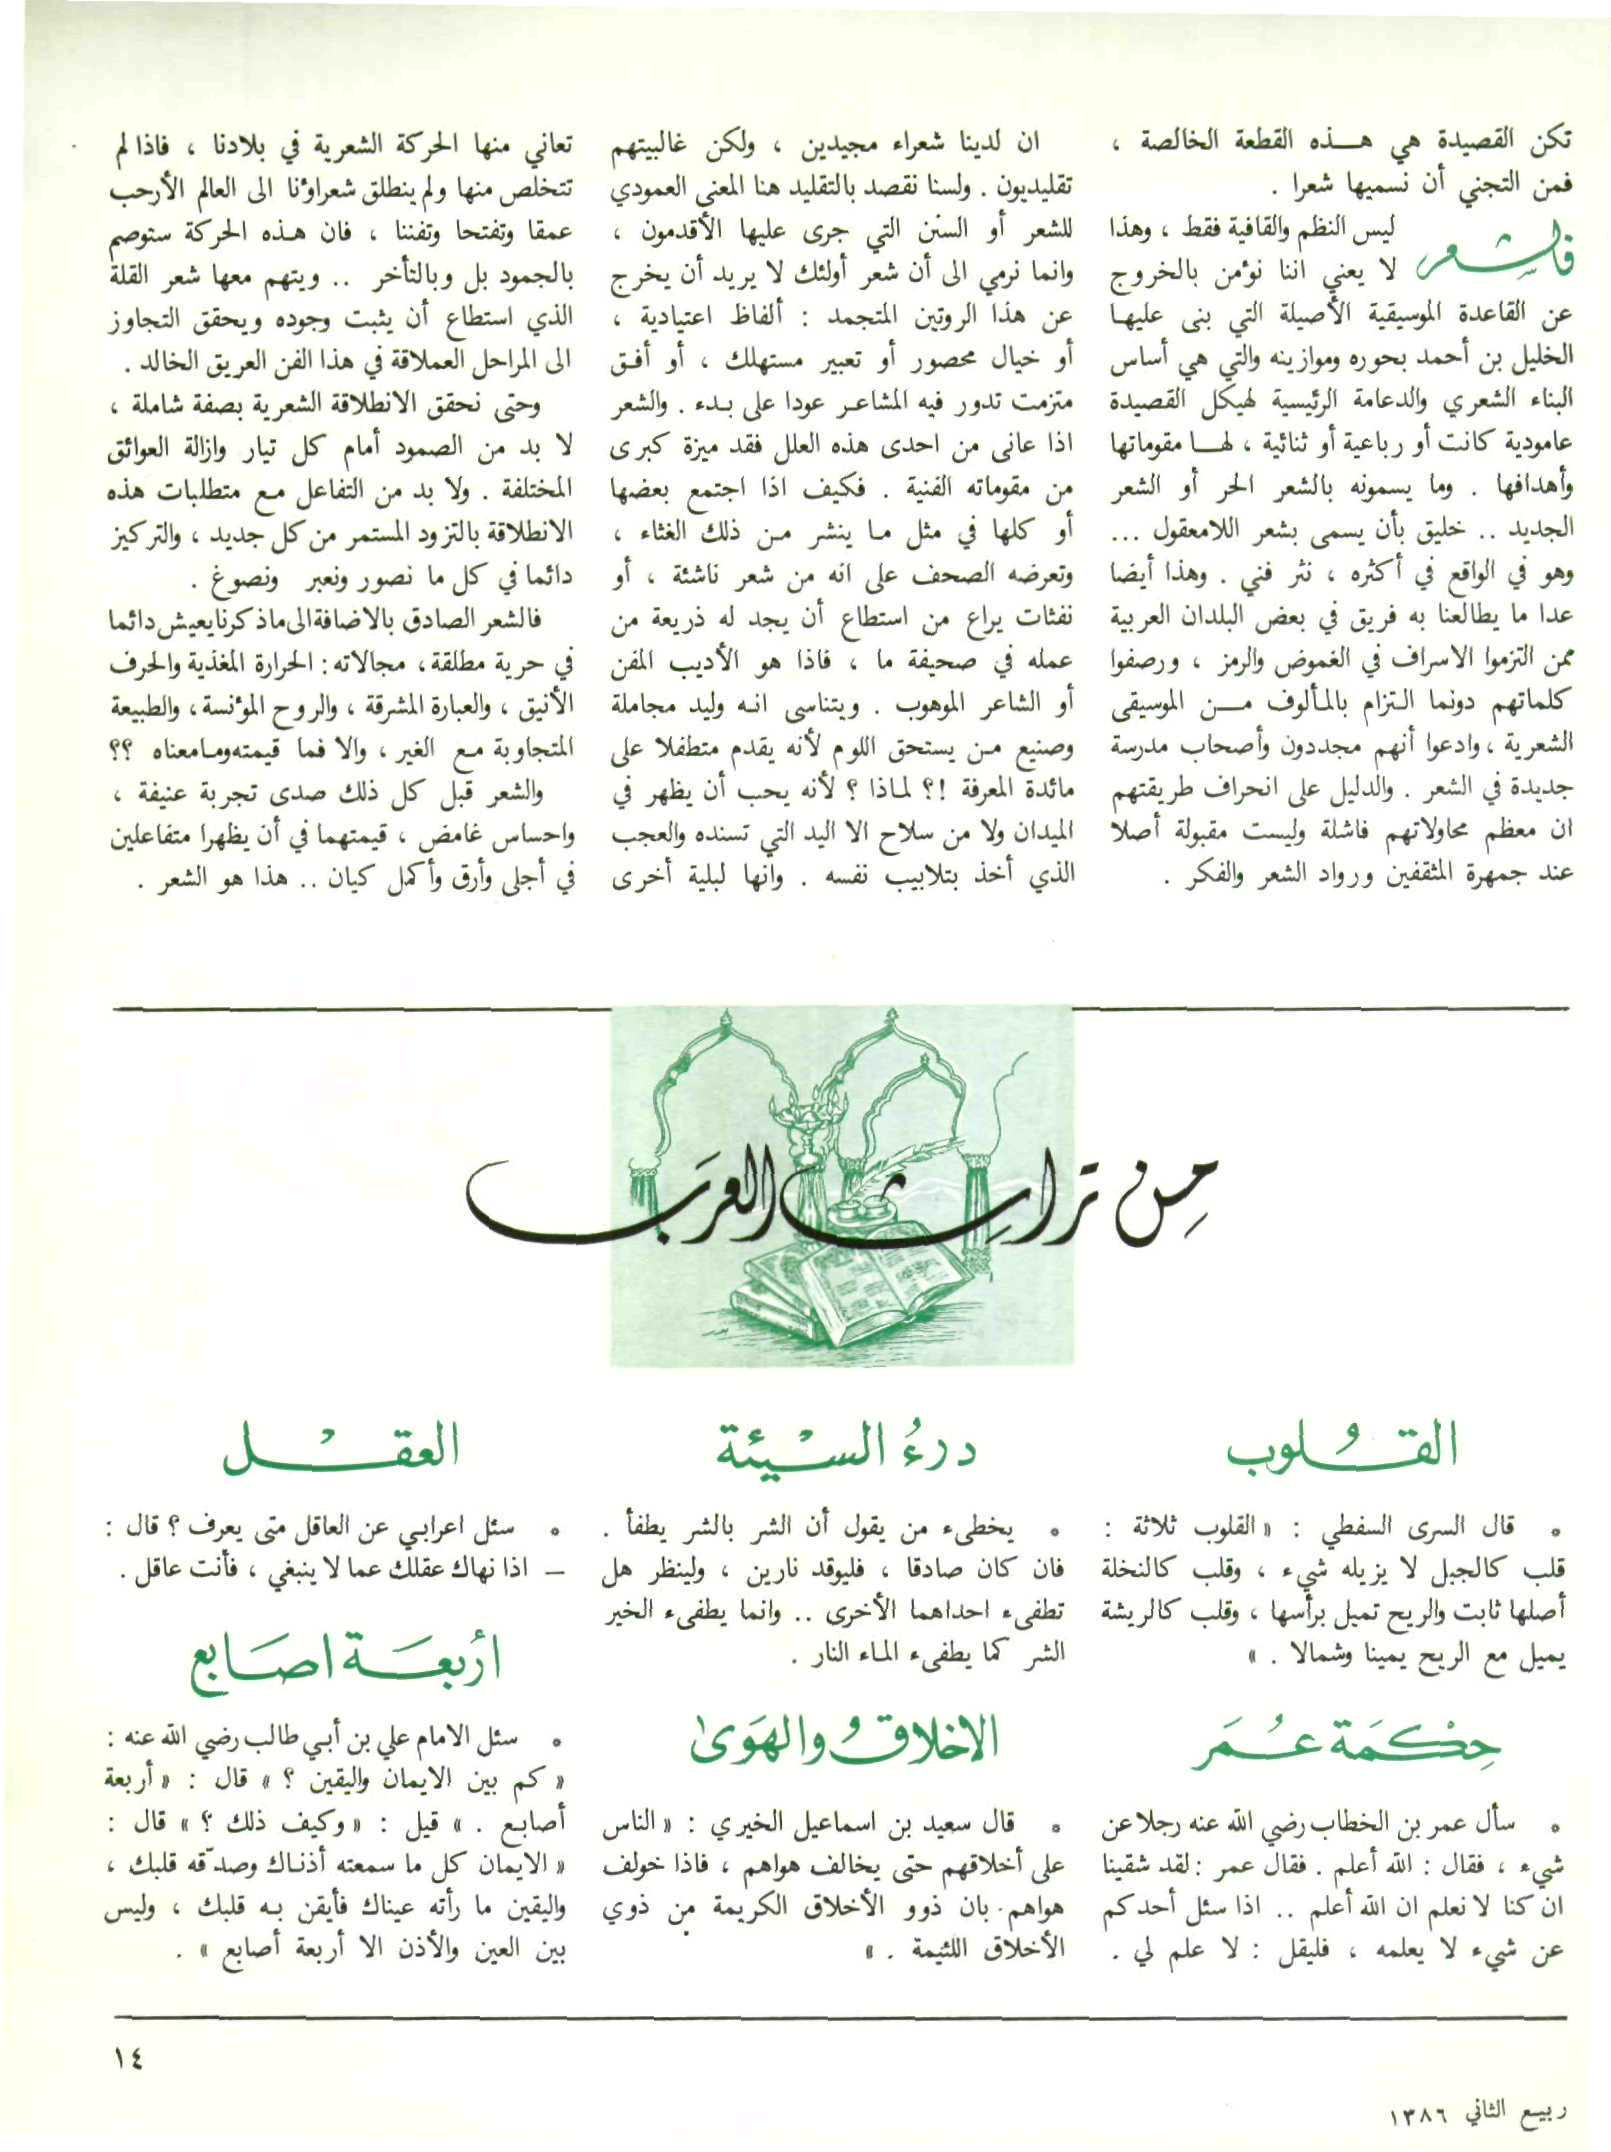 تكن القصيدة هي هـــذه القطعة الخالصة ،
فمن التجني أن نسميها شعرا .
فالشعر ليس النظم والقافية فقط ، وهذا
لا يعني اننا نؤمن بالخروج
عن القاعدة الموسيقية الأصيلة التي بنى عليها
الخليل بن أحمد بحوره وموازينه والتي هي أساس
البناء الشعري والدعامة الرئيسية لهيكل القصيدة
عامودية كانت أو رباعية أو ثنائية ، لهـا مقوماتها
وأهدافها . وما يسمونه بالشعر الحر أو الشعر
الجديد .. خليق بأن يسمى بشعر اللامعقول ...
وهو في الواقع في أكثره ، نثر فني . وهذا أيضا
عدا ما يطالعنا به فريق في بعض البلدان العربية
ممن التزموا الاسراف في الغموض والرمز ، ورصفوا
كلماتهم دونما التزام بالمألوف مــن الموسيقى
الشعرية ، وادعوا أنهم مجددون وأصحاب مدرسة
جديدة في الشعر . والدليل على انحراف طريقتهم
ان معظم محاولاتهم فاشلة وليست مقبولة أصلا
عند جمهرة المثقفين ورواد الشعر والفكر .
ان لدينا شعراء مجيدين ، ولكن غالبيتهم
تقليديون . ولسنا نقصد بالتقليد هنا المعنى العمودي
للشعر أو السنن التي جرى عليها الأقدمون ،
وانما نرمي الى أن شعر أولئك لا يريد أن يخرج
عن هذا الروتين المتجمد : ألفاظ اعتيادية ،
أو خيال محصور أو تعبير مستهلك ، أو أفـق
متزمت تدور فيه المشاعـر عودا على بـدء . والشعر
اذا عانى من احدى هذه العلل فقد ميزة كبرى
من مقوماته الفنية . فكيف اذا اجتمع بعضها
أو كلها في مثل مـا ينشر مـن ذلك الغثاء ،
وتعرضه الصحف على انه من شعر ناشئة ، أو
نفثات يراع من استطاع أن يجد له ذريعة من
عمله في صحيفة ما ، فاذا هو الأديب المفن
أو الشاعر الموهوب . ويتناسى انـه وليد مجاملة
وصنيع مـن يستحق اللوم لأنه يقدم متطفلا على
مائدة المعرفة !؟ لماذا ؟ لأنه يحب أن يظهر في
الميدان ولا من سلاح الا اليد التي تسنده والعجب
الذي أخذ بتلابيب نفسه . وانها لبلية أخرى
تعاني منها الحركة الشعرية في بلادنا ، فاذا لم
تتخلص منها ولم ينطلق شعراؤنا الى العالم الأرحب
عمقا وتفتحا وتفننا ، فان هـذه الحركة ستوصم
بالجمود بل وبالتأخر .. ويتهم معها شعر القلة
الذي استطاع أن يثبت وجوده ويحقق التجاوز
الى المراحل العملاقة في هذا الفن العريق الخالد .
وحتى نحقق الانطلاقة الشعرية بصفة شاملة ،
لا بد من الصمود أمام كل تيار وازالة العوائق
المختلفة . ولا بد من التفاعل مـع متطلبات هذه
الانطلاقة بالتزود المستمر من كل جديد ، والتركيز
دائما في كل ما نصور ونعبر ونصوغ .
فالشعر الصادق بالاضافة الى ماذكرنا يعيش دائما
في حرية مطلقة ، مجالاته : الحرارة المغذية والحرف
الأنيق ، والعبارة المشرقة ، والروح المؤنسة ، والطبيعة
المتجاوبة مـع الغير ، والا فما قيمته ومـا معناه ؟؟
والشعر قبل كل ذلك صدى تجربة عنيفة ،
واحساس غامض ، قيمتهما في أن يظهرا متفاعلين
في أجلى وأرق وأكمل كيان .. هذا هو الشعر .
مِن تراث العَرَب
القلُوب
• قال السرى السفطي : « القلوب ثلاثة :
قلب كالجبل لا يزيله شيء ، وقلب كالنخلة
أصلها ثابت والريح تميل برأسها ، وقلب كالريشة
يميل مع الريح يمينا وشمالا . »
حِكمَة عُمَر
• سأل عمر بن الخطاب رضي الله عنه رجلا عن
شيء ، فقال : الله أعلم . فقال عمر : لقد شقينا
ان كنا لا نعلم ان الله أعلم .. اذا سئل أحدكم
عن شيء لا يعلمه ، فليقل : لا علم لي .
درءُ السيْئة
• يخطىء من يقول أن الشر بالشر يطفأ .
فان كان صادقا ، فليوقد نارين ، ولينظر هل
تطفىء احداهما الأخرى .. وانما يطفىء الخير
الشر كما يطفىء الماء النار .
الاخلاقُ والهَوى
• قال سعيد بن اسماعيل الخيري : « الناس
على أخلاقهم حتى يخالف هواهم ، فاذا خولف
هواهم بان ذوو الأخلاق الكريمة من ذوي
الأخلاق اللئيمة . »
العقْل
• سئل اعرابي عن العاقل متى يعرف ؟ قال :
– اذا نهاك عقلك عما لا ينبغي ، فأنت عاقل .
أربعَة اصَابع
• سئل الامام علي بن أبي طالب رضي الله عنه :
« كم بين الايمان واليقين ؟ » قال : « أربعة
أصابـع . » قيل : « وكيف ذلك ؟ » قال :
« الايمان كل ما سمعته أذنـاك وصدّقه قلبك ،
واليقين ما رأته عيناك فأيقن بـه قلبك ، وليس
بين العين والأذن الا أربعة أصابع » .
١٤
ربيـع الثاني ١٣٨٦